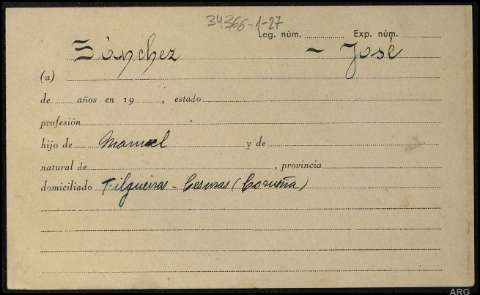 34366-1-27
Leg. núm. Exp. núm.
Sánchez - José
(a)
de años en 19 , estado
profesión
hijo de Manuel y de
natural de , provincia
domiciliado Filgueiras - Cesuras (Coruña)
ARG